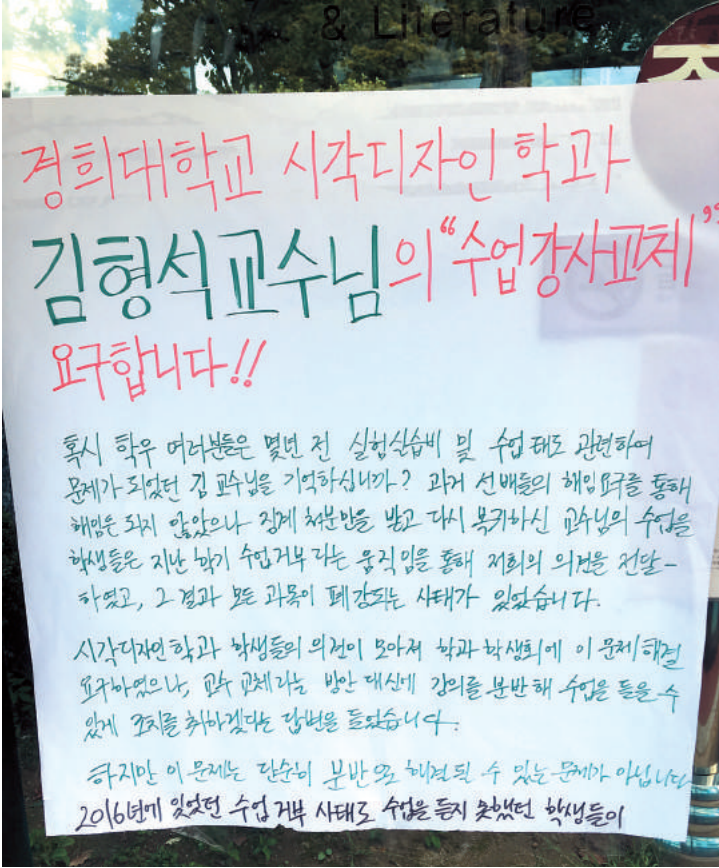 & Literature
경희대학교 시각디자인 학과
김형석교수님의 "수업강사교체"
요구합니다!!
혹시 학우 여러분들은 몇년 전 실험실습비 및 수업태도 관련하여
문제가 되었던 김 교수님을 기억하십니까? 과거 선배들의 해임요구를 통해
해임은 되지 않았으나 징계 처분만을 받고 다시 복귀하신 교수님의 수업을
학생들은 지난 학기 수업거부 라는 움직임을 통해 저희의 의견을 전달-
하였고, 그 결과 모든 과목이 폐강되는 사태가 있었습니다.
시각디자인학과 학생들의 의견이 모아져 학과 학생회에 이 문제해결
요구하였으나, 교수 교체라는 방안 대신에 강의를 분반해 수업을 들을 수
있게 조치를 취하겠다는 답변을 들었습니다.
하지만 이 문제는 단순히 분반으로 해결될 수 있는 문제가 아닙니다
2016년에 있었던 수업 거부 사태로 수업을 듣지 못했던 학생들이